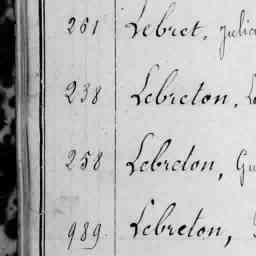 261 Lebret, Julia
238 Lebreton, L
258 Lebreton, Gu
989 Lebreton,